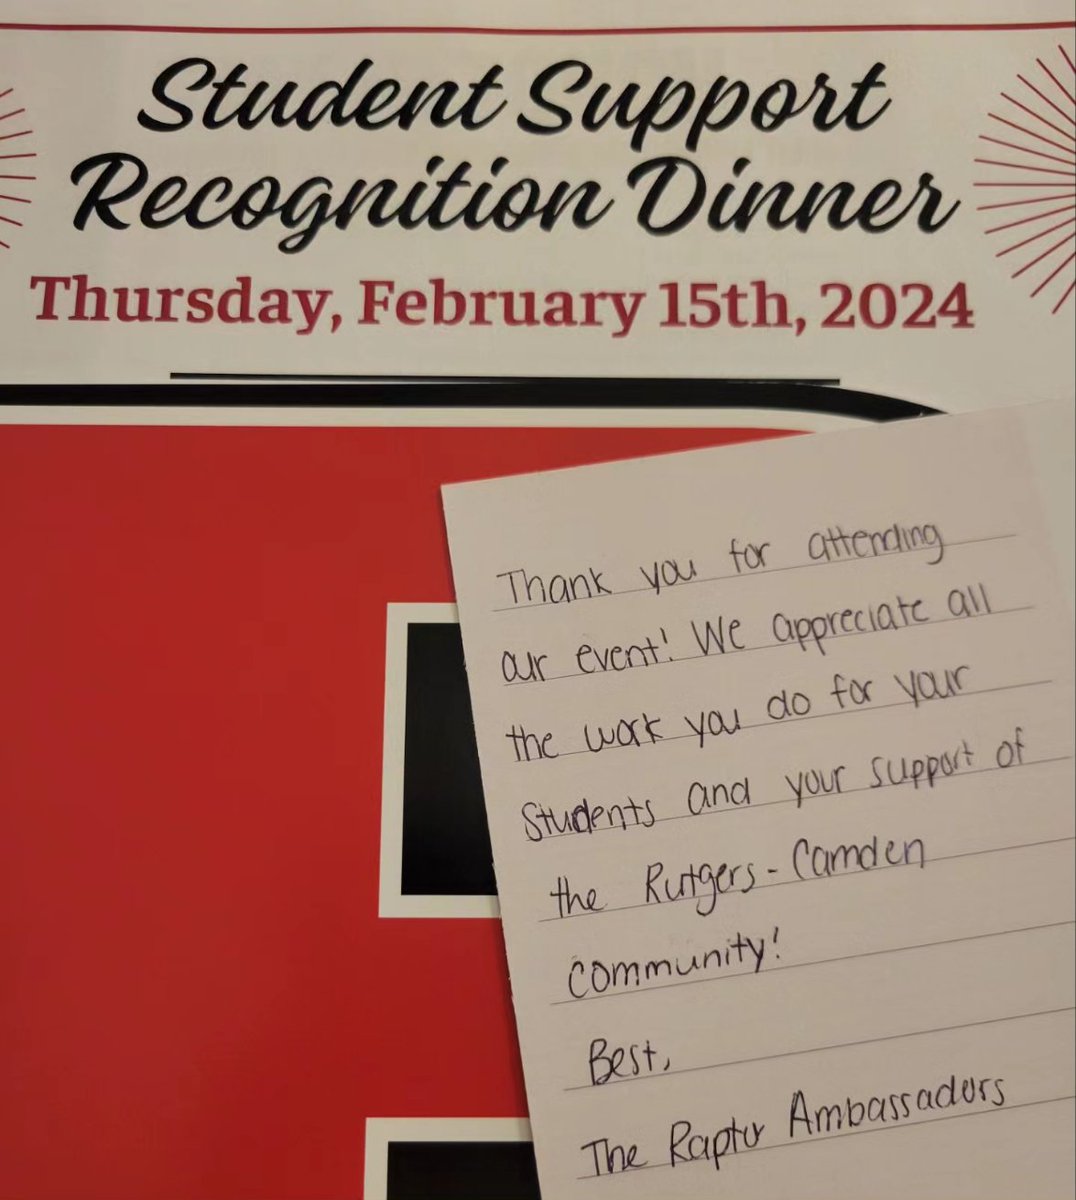 Student Support
Recognition Dinner
Thursday, February 15th, 2024
Thank you for attending
our event! We appreciate all
the work you do for your
Students and your support of
the Rutgers-Camden
Community!
Best,
The Raptor Ambassadors